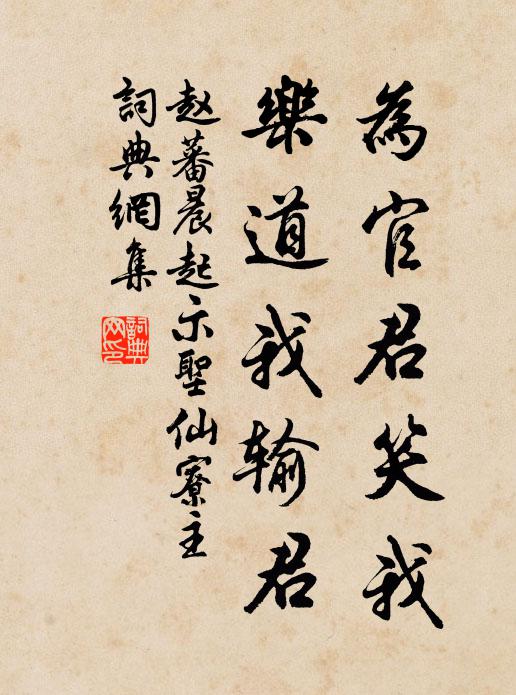 為官君笑我
樂道我输君
赵蕃晨起示聖仙寮主
詞典網集
詞典網印